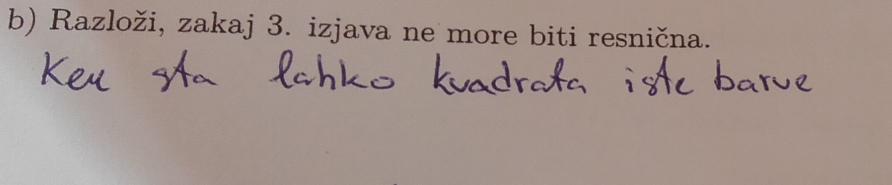 b) Razloži, zakaj 3. izjava ne more biti resnična.
Ker sta lahko kvadrata iste barve